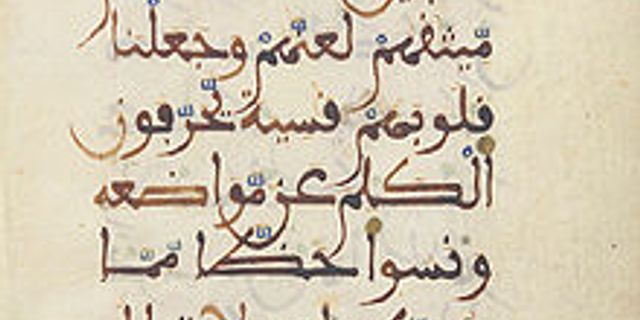 مِّيثَٰقَهُمْ لَعَنَّٰهُمْ وَجَعَلْنَا
قُلُوبَهُمْ قَٰسِيَةً يُحَرِّفُونَ
اَ۬لْكَلِمَ عَن مَّوَاضِعِهِۦ
وَنَسُواْ حَظّاً مِّمَّا